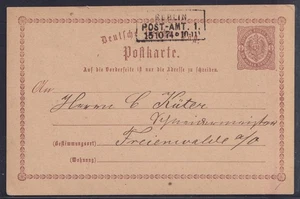 BERLIN
POST-AMT. 1.
15 10 74
Deutsche
Postkarte.
Auf die Vorderseite ist nur die Adresse zu schreiben.
An
Herrn C Küter
Schneidermeister
Freienwalde a/O
(Bestimmungsort)
(Wohnung)